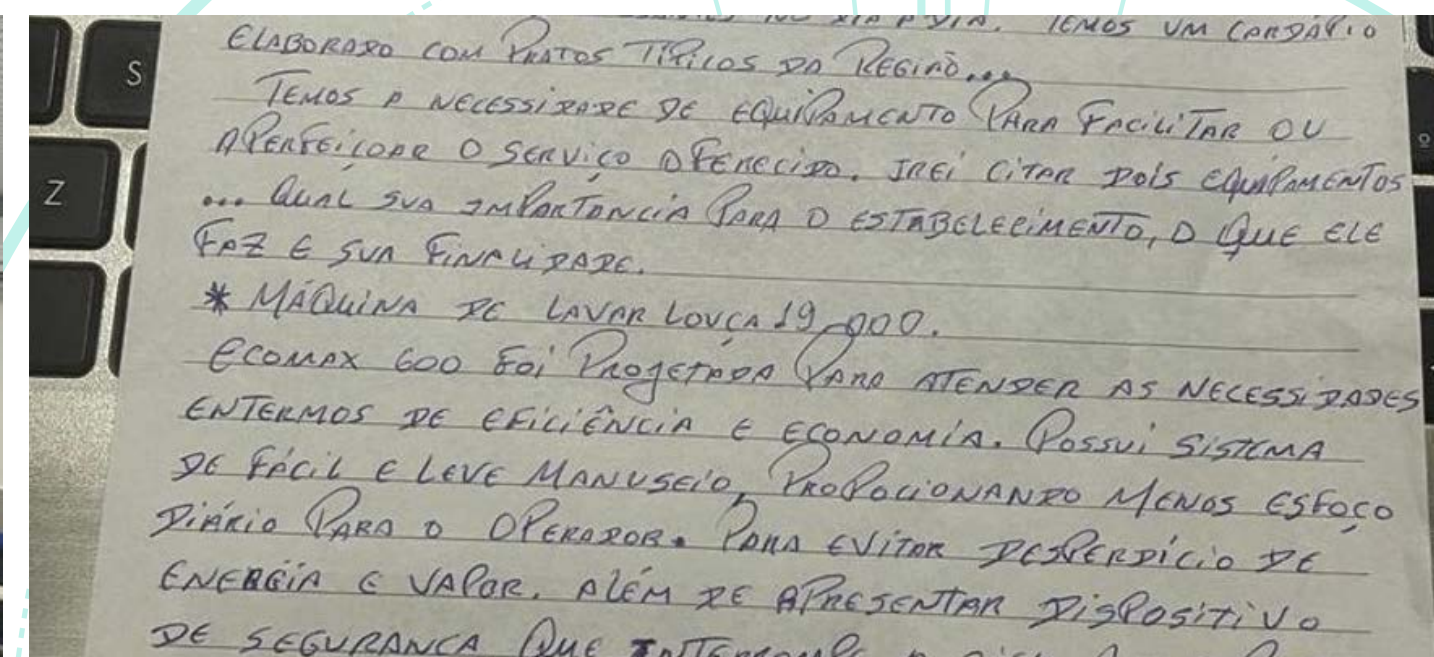 NO DIA A DIA. TEMOS UM CARDÁPIO
ELABORADO COM PRATOS TÍPICOS DA REGIÃO...
TEMOS A NECESSIDADE DE EQUIPAMENTO PARA FACILITAR OU
APERFEIÇOAR O SERVIÇO OFERECIDO. IREI CITAR DOIS EQUIPAMENTOS
... QUAL SUA IMPORTANCIA PARA O ESTABELECIMENTO, O QUE ELE
FAZ E SUA FINALIDADE.
* MÁQUINA DE LAVAR LOUÇA 19,000.
ECOMAX 600 FOI PROJETADA PARA ATENDER AS NECESSIDADES
ENTERMOS DE EFICIÊNCIA E ECONOMIA. POSSUI SISTEMA
DE FÁCIL E LEVE MANUSEIO, PROPOCIONANDO MENOS ESFOÇO
DIÁRIO PARA O OPERADOR. PARA EVITAR DESPERDÍCIO DE
ENERGIA E VAPOR. ALÉM DE APRESENTAR DISPOSITIVO
DE SEGURANÇA QUE
S
Z